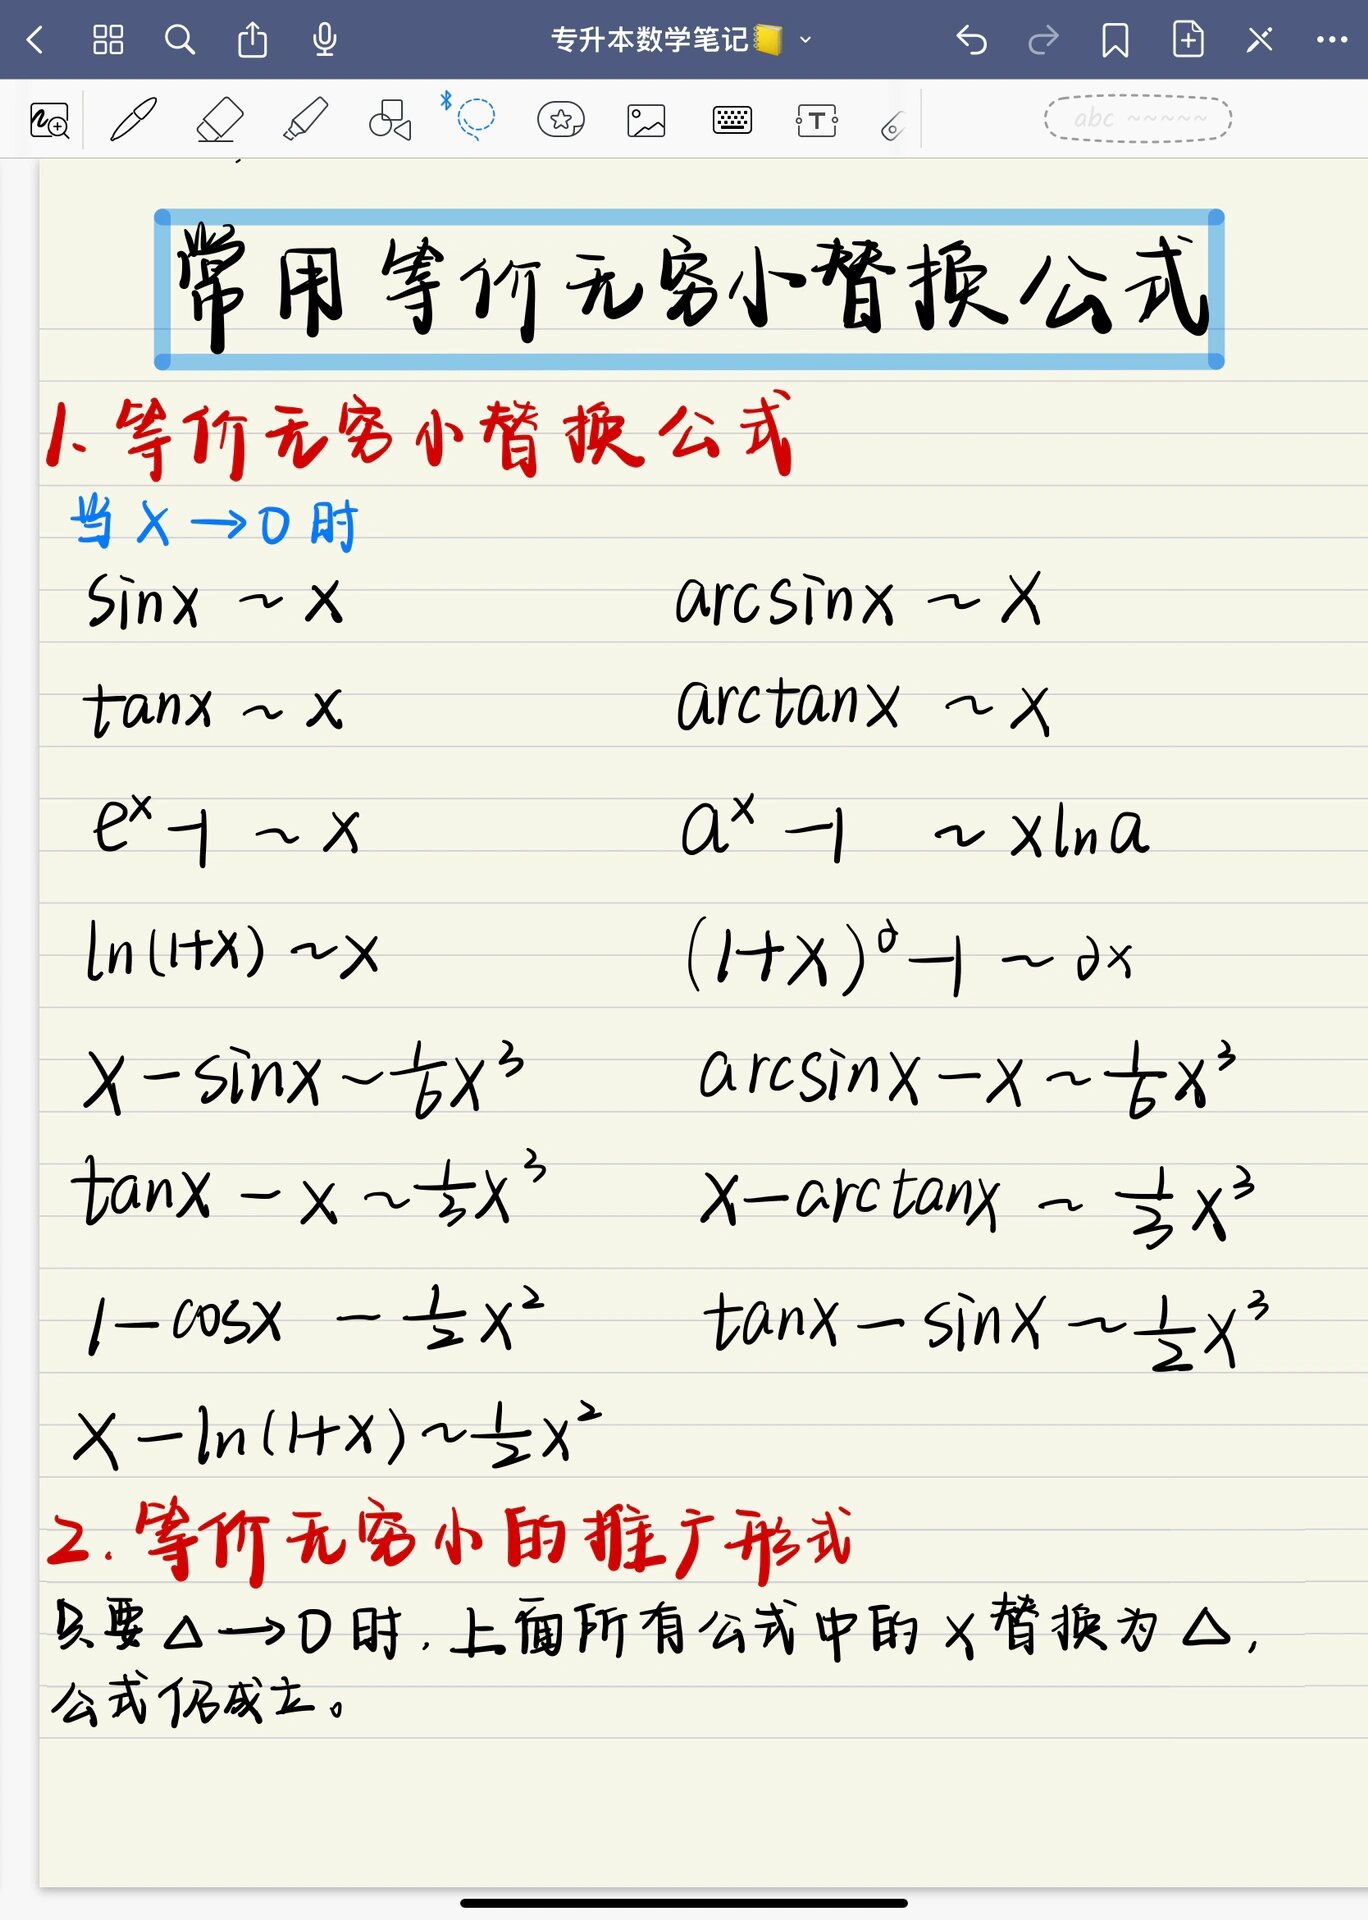 专升本数学笔记
abc
常用等价无穷小替换公式
1. 等价无穷小替换公式
当 x → 0 时
sinx ~ x arcsinx ~ x
tanx ~ x arctanx ~ x
eˣ - 1 ~ x aˣ - 1 ~ xlna
ln(1+x) ~ x (1+x)^∂ - 1 ~ ∂x
x - sinx ~ 1/6 x³ arcsinx - x ~ 1/6 x³
tanx - x ~ 1/3 x³ x - arctanx ~ 1/3 x³
1 - cosx - 1/2 x² tanx - sinx ~ 1/2 x³
x - ln(1+x) ~ 1/2 x²
2. 等价无穷小的推广形式
只要 △ → 0 时, 上面所有公式中的 x 替换为 △,
公式仍成立。